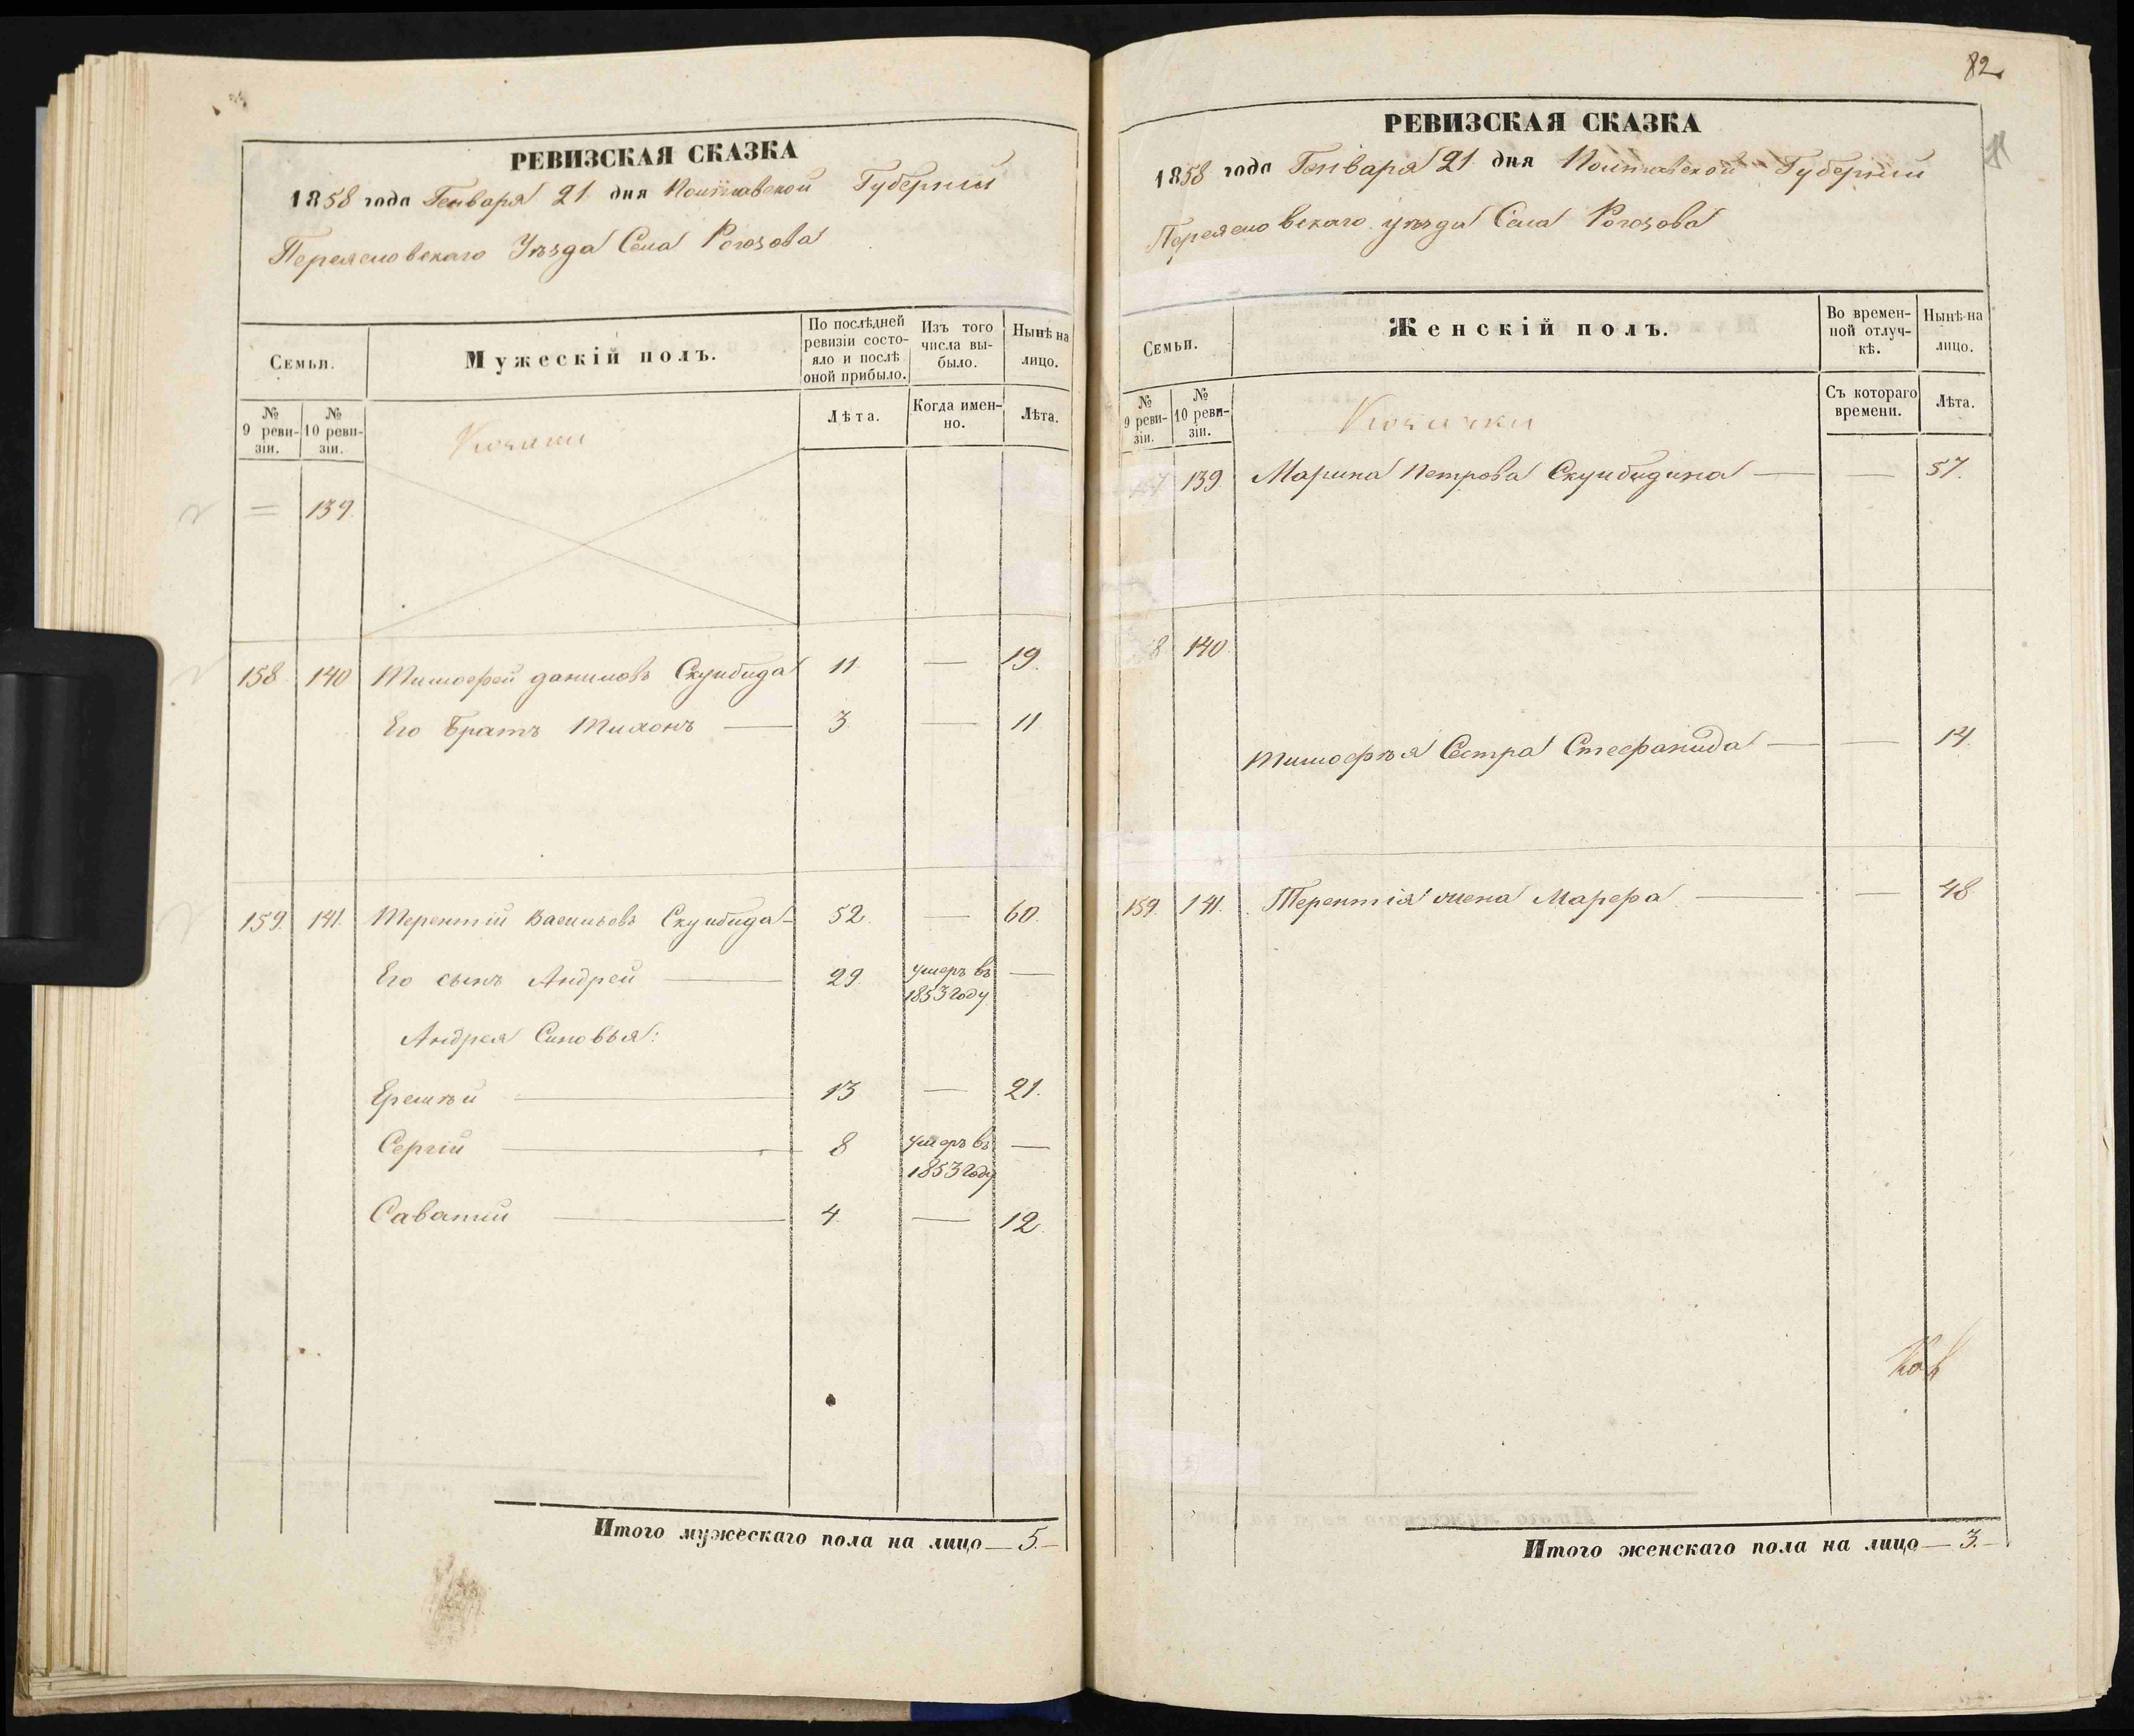 РЕВИЗСКАЯ СКАЗКА
1858 года Генваря 21 дня Полтавской Губернии
Переяславскаго Уѣзда Села Рогозова
Семьи.
Мужескій полъ.
По послѣдней ревизіи состояло и послѣ оной прибыло.
Изъ того числа выбыло.
Нынѣ на лицо.
№ 9 ревизіи.
№ 10 ревизіи.
Козаки
Лѣта.
Когда именно.
Лѣта.
= 139.
158. 140 Тимофей Даниловъ Скуибида 11. — 19.
Его Братъ Тихонъ — 3. — 11
159. 141. Терентий Васильевъ Скуибида — 52. — 60.
Его сынъ Андрей — 29. умеръ въ 1853 году —
Андрея Синовья:
Еремѣй — 13 — 21.
Сергій — 8 умеръ въ 1853 году —
Саватий — 4. — 12.
Итого мужескаго пола на лицо — 5. —
82
РЕВИЗСКАЯ СКАЗКА
1858 года Генваря 21 дня Полтавской Губернии
Переяславскаго уѣзда Села Рогозова
Семьи.
Женскій полъ.
Во временной отлучкѣ.
Нынѣ на лицо.
№ 9 ревизіи.
№ 10 ревизіи.
Козачки
Съ котораго времени.
Лѣта.
7 139. Марина Петрова Скуибидина — — 57.
8 140.
Тимофѣя Сестра Стефанида — — 14.
159. 141. Терентія жена Марфа — — 48
Итого женскаго пола на лицо — 3. —